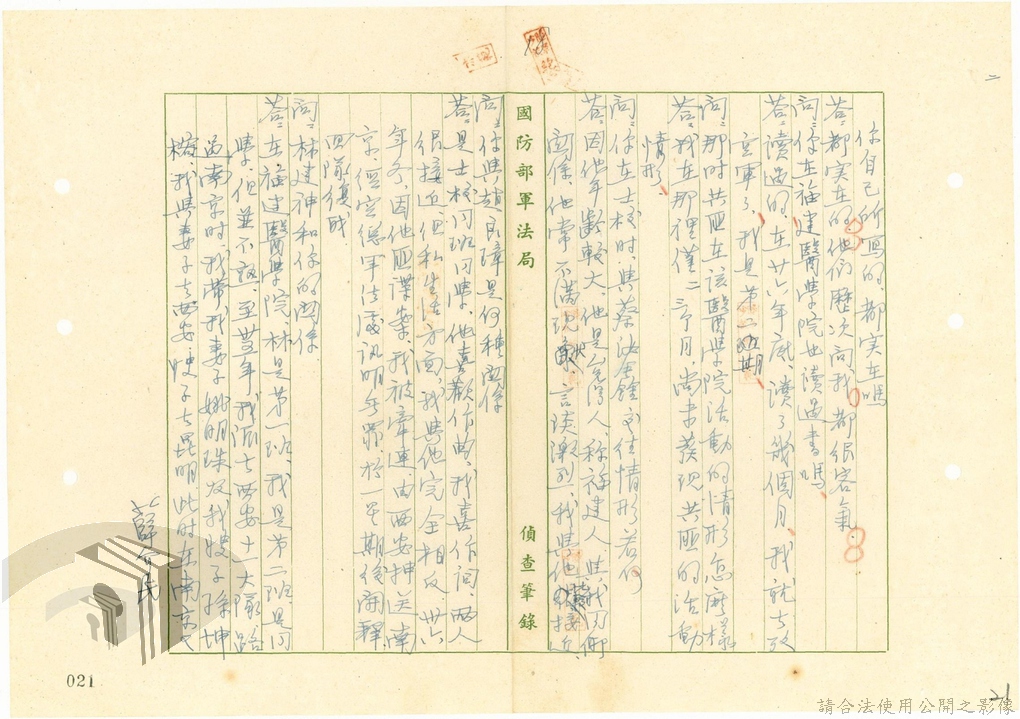 二
你自己所寫的都實在嗎
答：都實在的他們歷次向我都很客氣
問：你在福建醫學院也讀過書嗎
答：讀過的在廿六年底、讀了幾個月、我就去改
空軍了、我是第二期
問：那时共匪在該醫學院活動的情形怎麽樣
答：我在那裡僅二三个月尚未發現共匪的活動
情形、
問：你在士校时、與蔡汝鑫交往情形若何
答：因他年齡較大、他是台灣人、称福建人、與我同鄉
関係、他常不滿現狀、言談激烈、我與他接近、
國防部軍法局 偵查筆錄
問：你與趙良璋是何種関係
答：是士校同班同學、他喜歡作曲、我喜作詞、两人
很接近但私生活方面、我與他完全相反卅六
年冬、因他匪諜案、我被牽連由西安押送南
京、經空總軍法處訊明無罪於一星期後開釋
回隊復職
問：林建神和你的関係
答：在福建醫學院、林是第一班、我是第二班是同
學、但並不熟、至卅年我派去西安十一大隊路
過南京时、我带我妻子姚明珠及我嫂子孫坤
榕、我與妻子去西安嫂子去昆明此时在南京
薛介民
021
21
請合法使用公開之影像